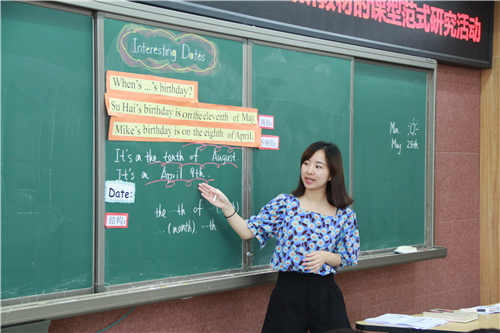 教材的课型范式研究活动
Interesting Dates
When's ...'s birthday?
Su Hai's birthday is on the eleventh of May.
Mike's birthday is on the eighth of April.
It's on the tenth of August.
It's on April 9th.
Date:
the ...th of ...
结构:
...(month), ...th
Mon.
May 28th